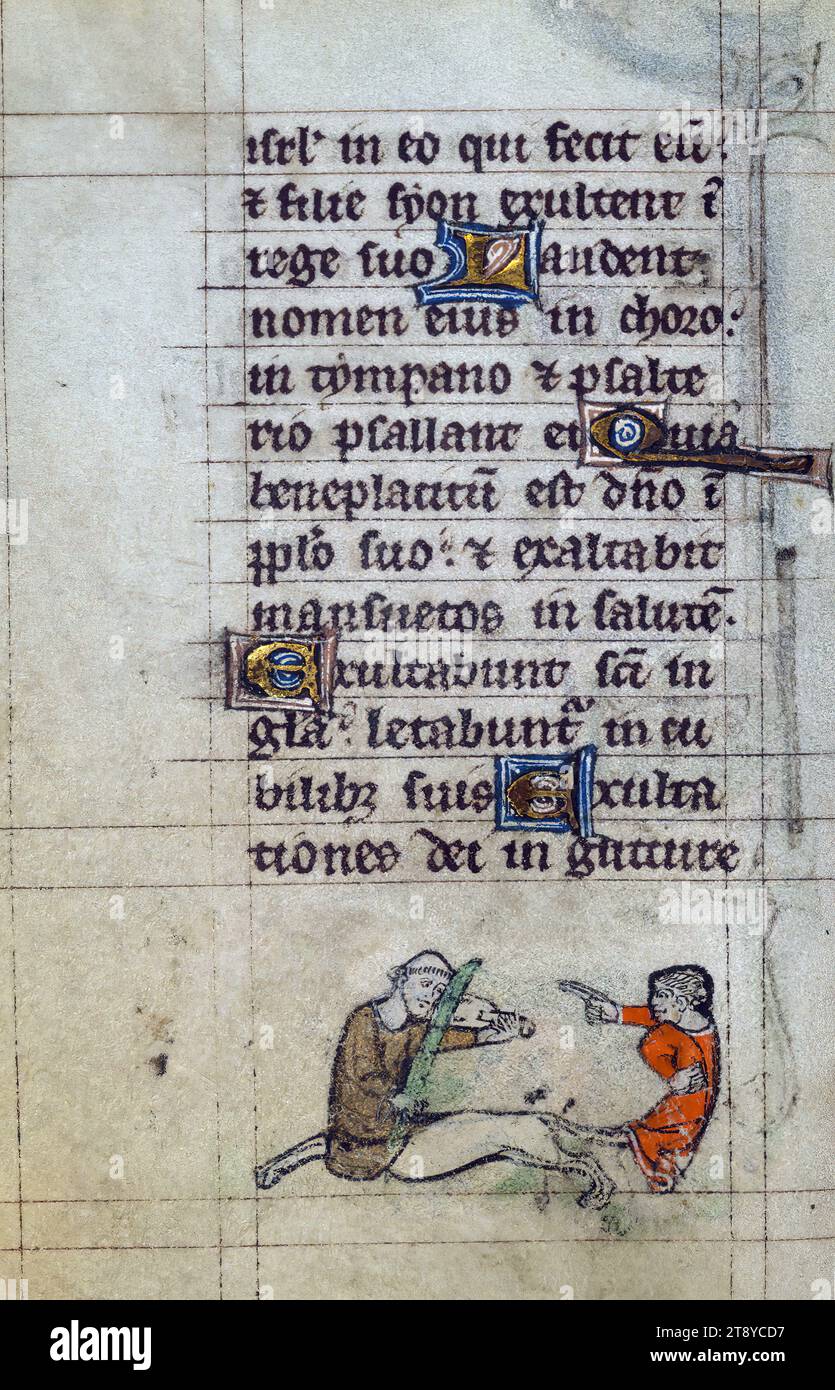 isrl' in eo qui fecit eū:
⁊ filie syon exultent ī
rege suo Laudent
nomen eius in choro:
in tympano ⁊ psalte
rio psallant ei Quia
beneplacitū est dn̄o ī
pplo suo: ⁊ exaltabit
mansuetos in salutē.
Exultabunt sc̄i in
gl̄a: letabunt᷑ in cu
bilibꝫ suis Exulta
tiones dei in gutture
alamy
Image ID: 2T8YCD7
www.alamy.com